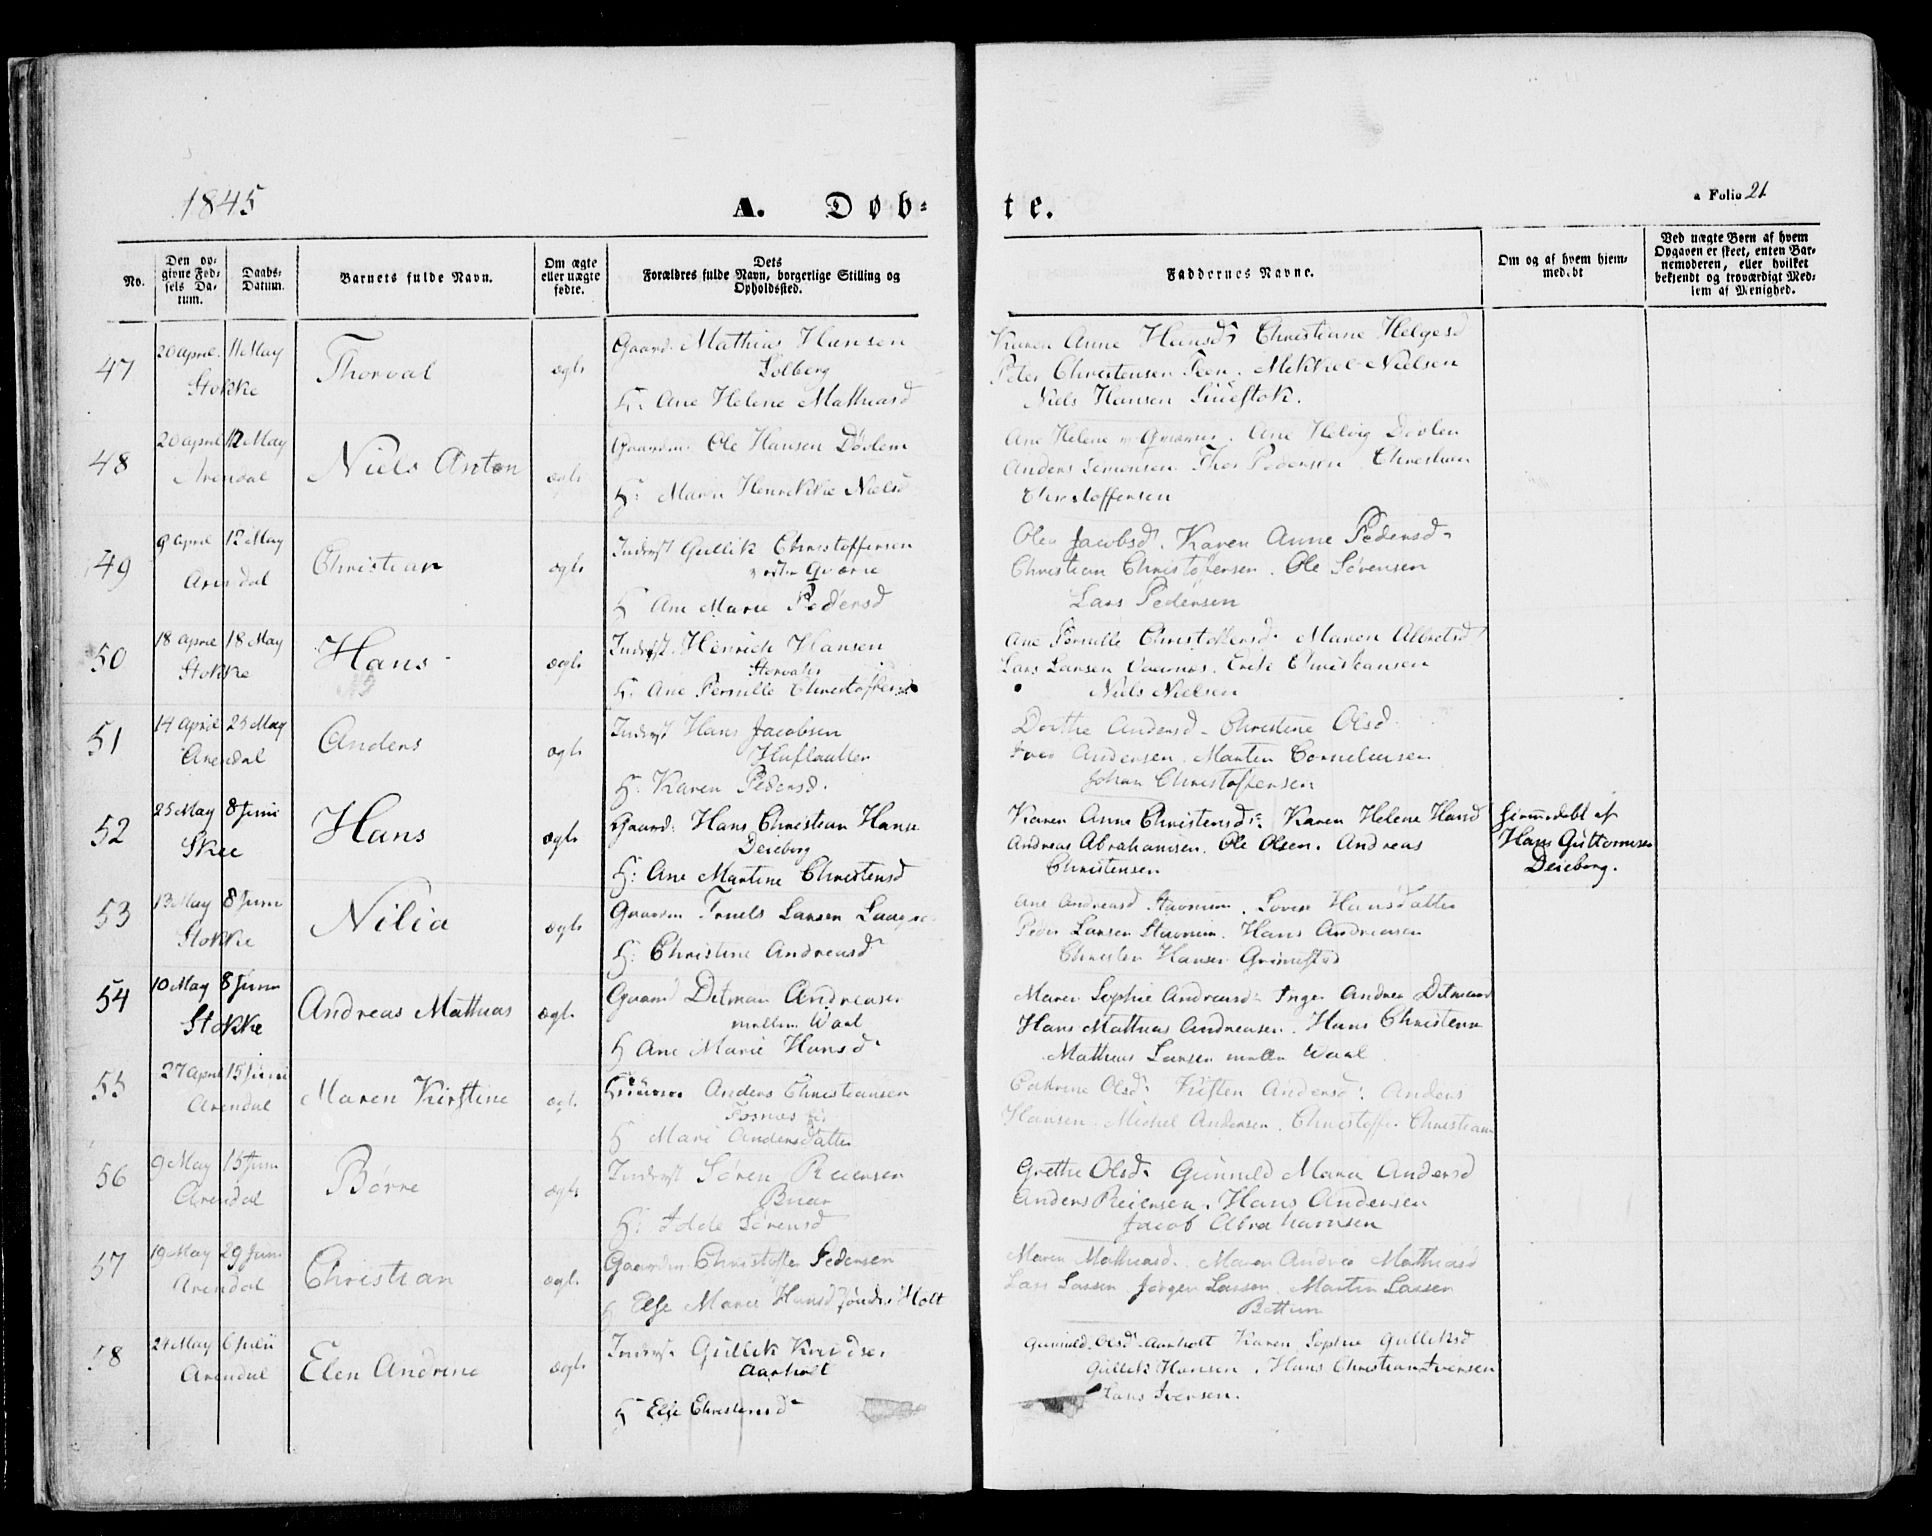 1845
A. Døb-
te.
a Folio 21
No.
Den op-
givne Fød-
sels Da-
tum.
Daabs-
Datum.
Barnets fulde Navn.
Om ægte
eller uægte
fødte.
Dets
Forældres fulde Navn, borgerlige Stilling og
Opholdssted.
Faddernes Navne.
Om og af hvem hjem-
medøbt
Ved uægte Børn af hvem
Opgaven er skeet, enten Bar-
nemoderen, eller hvilket
bekjendt og troværdigt Med-
lem af Menighed.
47
20 April
11 May
Stokke
Thorval
ægte
Gaard. Mathias Hansen
Solberg
H. Ane Helene Mathiasd
Karen Anne Hansd Christiane Helgesd
Peter Christensen Feen. Mikkel Nielsen
Niels Hansen
48
20 April
12 May
Arendal
Niels Anton
ægte
Gaardm Ole Hansen Døvlem
H: Maria Nielsd
Ane Helene. Ane Helvig Dovlen
Anders Simonsen Thor Pedersen Christian
Christoffersen
49
9 April
12 May
Arendal
Christian
ægte
Inderst Gullik Christoffersen
H Ane Marie Pedersd
Olea Jacobsd. Karen Anne Pedersd
Christian Christofersen. Ole Sørensen
Lars Pedersen
50
18 April
18 May
Stokke
Hans
ægte
Inderst Henrich Hansen
H. Ane Pernille Christofersd
Ane Pernille Christoffersd. Maren Albretsd
Lars Larsen. Christiansen
Niels Nielsen
51
14 April
25 May
Arendal
Anders
ægte
Inderst Hans Jacobsen
H. Karen Pedersd.
Dorthe Andersd. Christine Olsd
Iver Andersen. Martin Corneliusen
Johan Christoffersen
52
25 May
8 Juni
Skee
Hans
ægte
Gaard: Hans Christian Hanse
Deieborg
H: Ane Martine Christensd
Karen Anne Christensd: Karen Helene Hansd
Andreas Abrahamsen. Ole Olsen. Andreas
Christensen
hjemmedøbt af
Hans Guttormsen
Deieborg.
53
13 May
8 Juni
Stokke
Nilia
ægte
Gaardm Truels Larsen
H: Christine Andreasd
Ane Andreasd Stavnum. Lovise Hansdatter
Peder Larsen Stavnum. Hans Andreasen
Christen Hansen Grimestad
54
10 May
8 Juni
Stokke
Andreas Mathias
ægte
Gaard Ditman Andreasen
mellem Waal
H Ane Marie Hansd
Maren Sophie Andreasd: Inger Andrea Ditmand
Hans Mathias Andreasen. Hans Christense
Mathias Larsen mellm Waal
55
27 April
15 Juni
Arendal
Maren Kirstine
ægte
Huusm Anders Christiansen
Fosnæs
H Mari Andersdatter
Cathrine Olsd: Kirsten Andersd: Anders
Hansen. Michel Andersen. Christoffer Christians
56
9 May
15 Juni
Arendal
Børre
ægte
Inderst Søren Reiersen
Buer
H: Idde Sørensd
Grethe Olsd. Gunnild Maria Andersd
Anders Reiersen. Hans Andersen
Jacob Abrahamsen
57
19 May
29 Juni
Arendal
Christian
ægte
Gaardm Christoffer Pedersen
H Else Marie Hansd søndre Holt
Maren Mathiasd. Maren Andrea Mathiasd
Lars Larsen Jørgen Larsen. Martin Larsen
Bettum
58
24 May
6 Julii
Arendal
Elen Andrine
ægte
Inderst Gullik Knudsen
Aarholt
H Else Christensd
Gunnild Olsd Aarholt Karen Sophie Gulliksd
Gullik Hansen. Hans Christian Iversen
Hans Iversen.